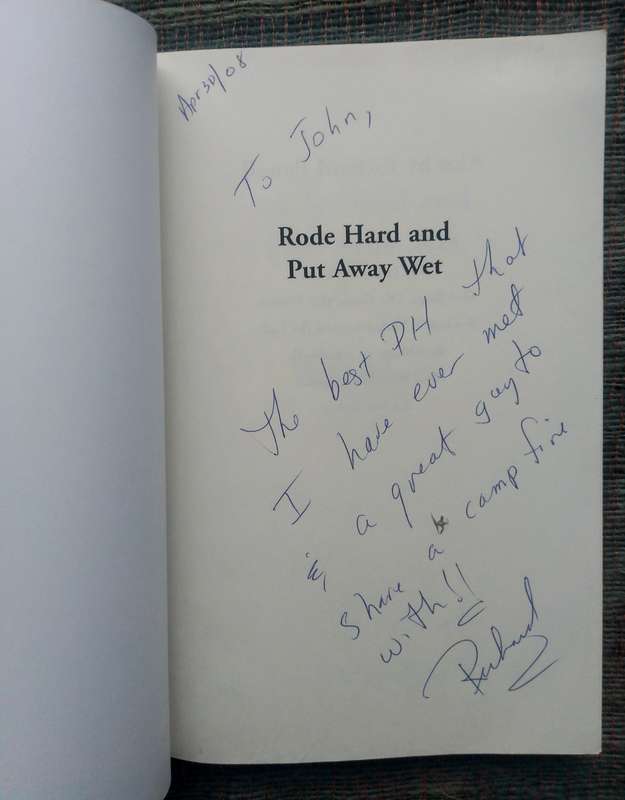 Apr 30/08
To John,
Rode Hard and
Put Away Wet
The best PH that
I have ever met
& a great guy to
share a camp fire
with!!
Richard